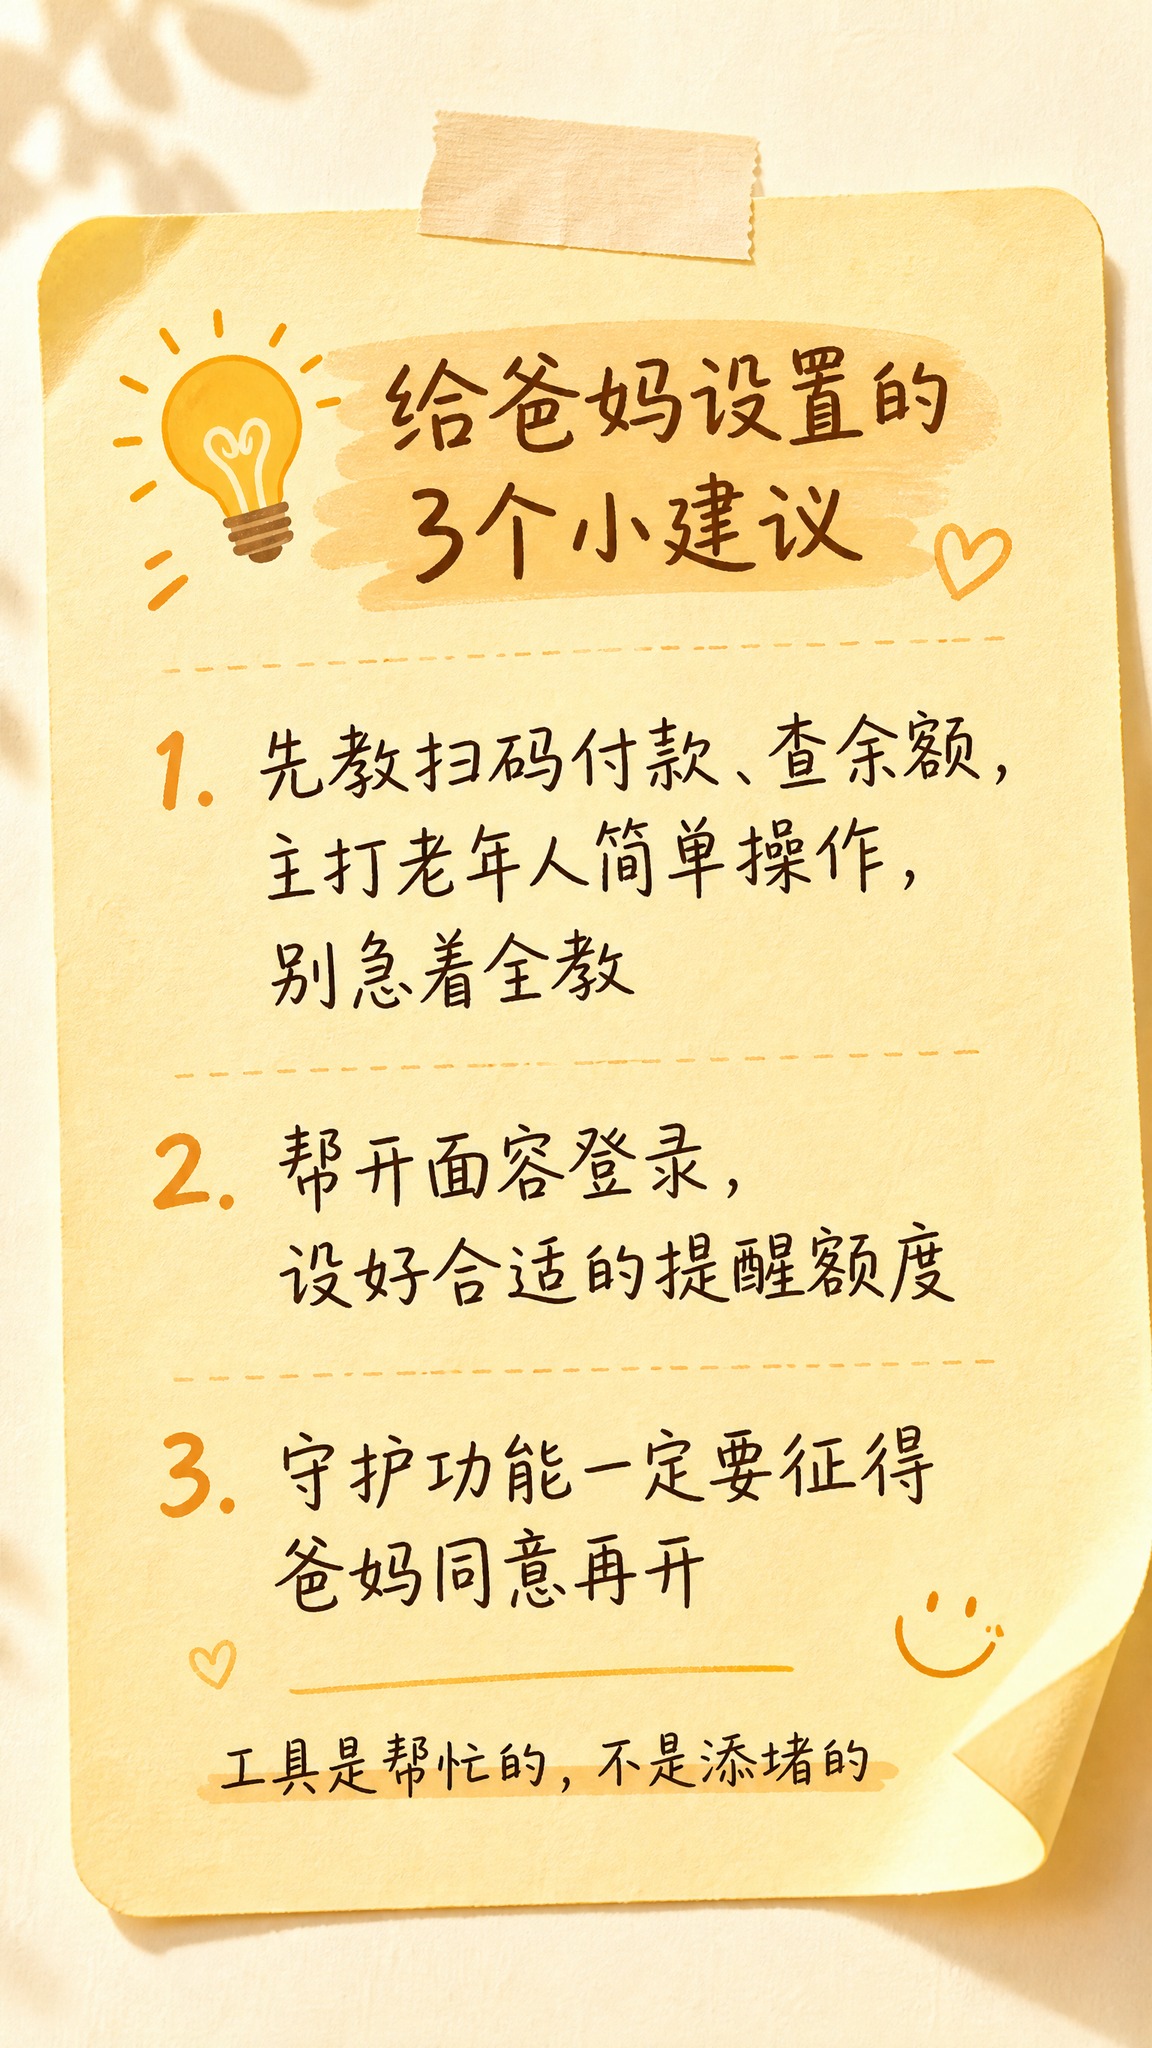 给爸妈设置的
3个小建议
1. 先教扫码付款、查余额，
主打老年人简单操作，
别急着全教
2. 帮开面容登录，
设好合适的提醒额度
3. 守护功能一定要征得
爸妈同意再开
工具是帮忙的，不是添堵的